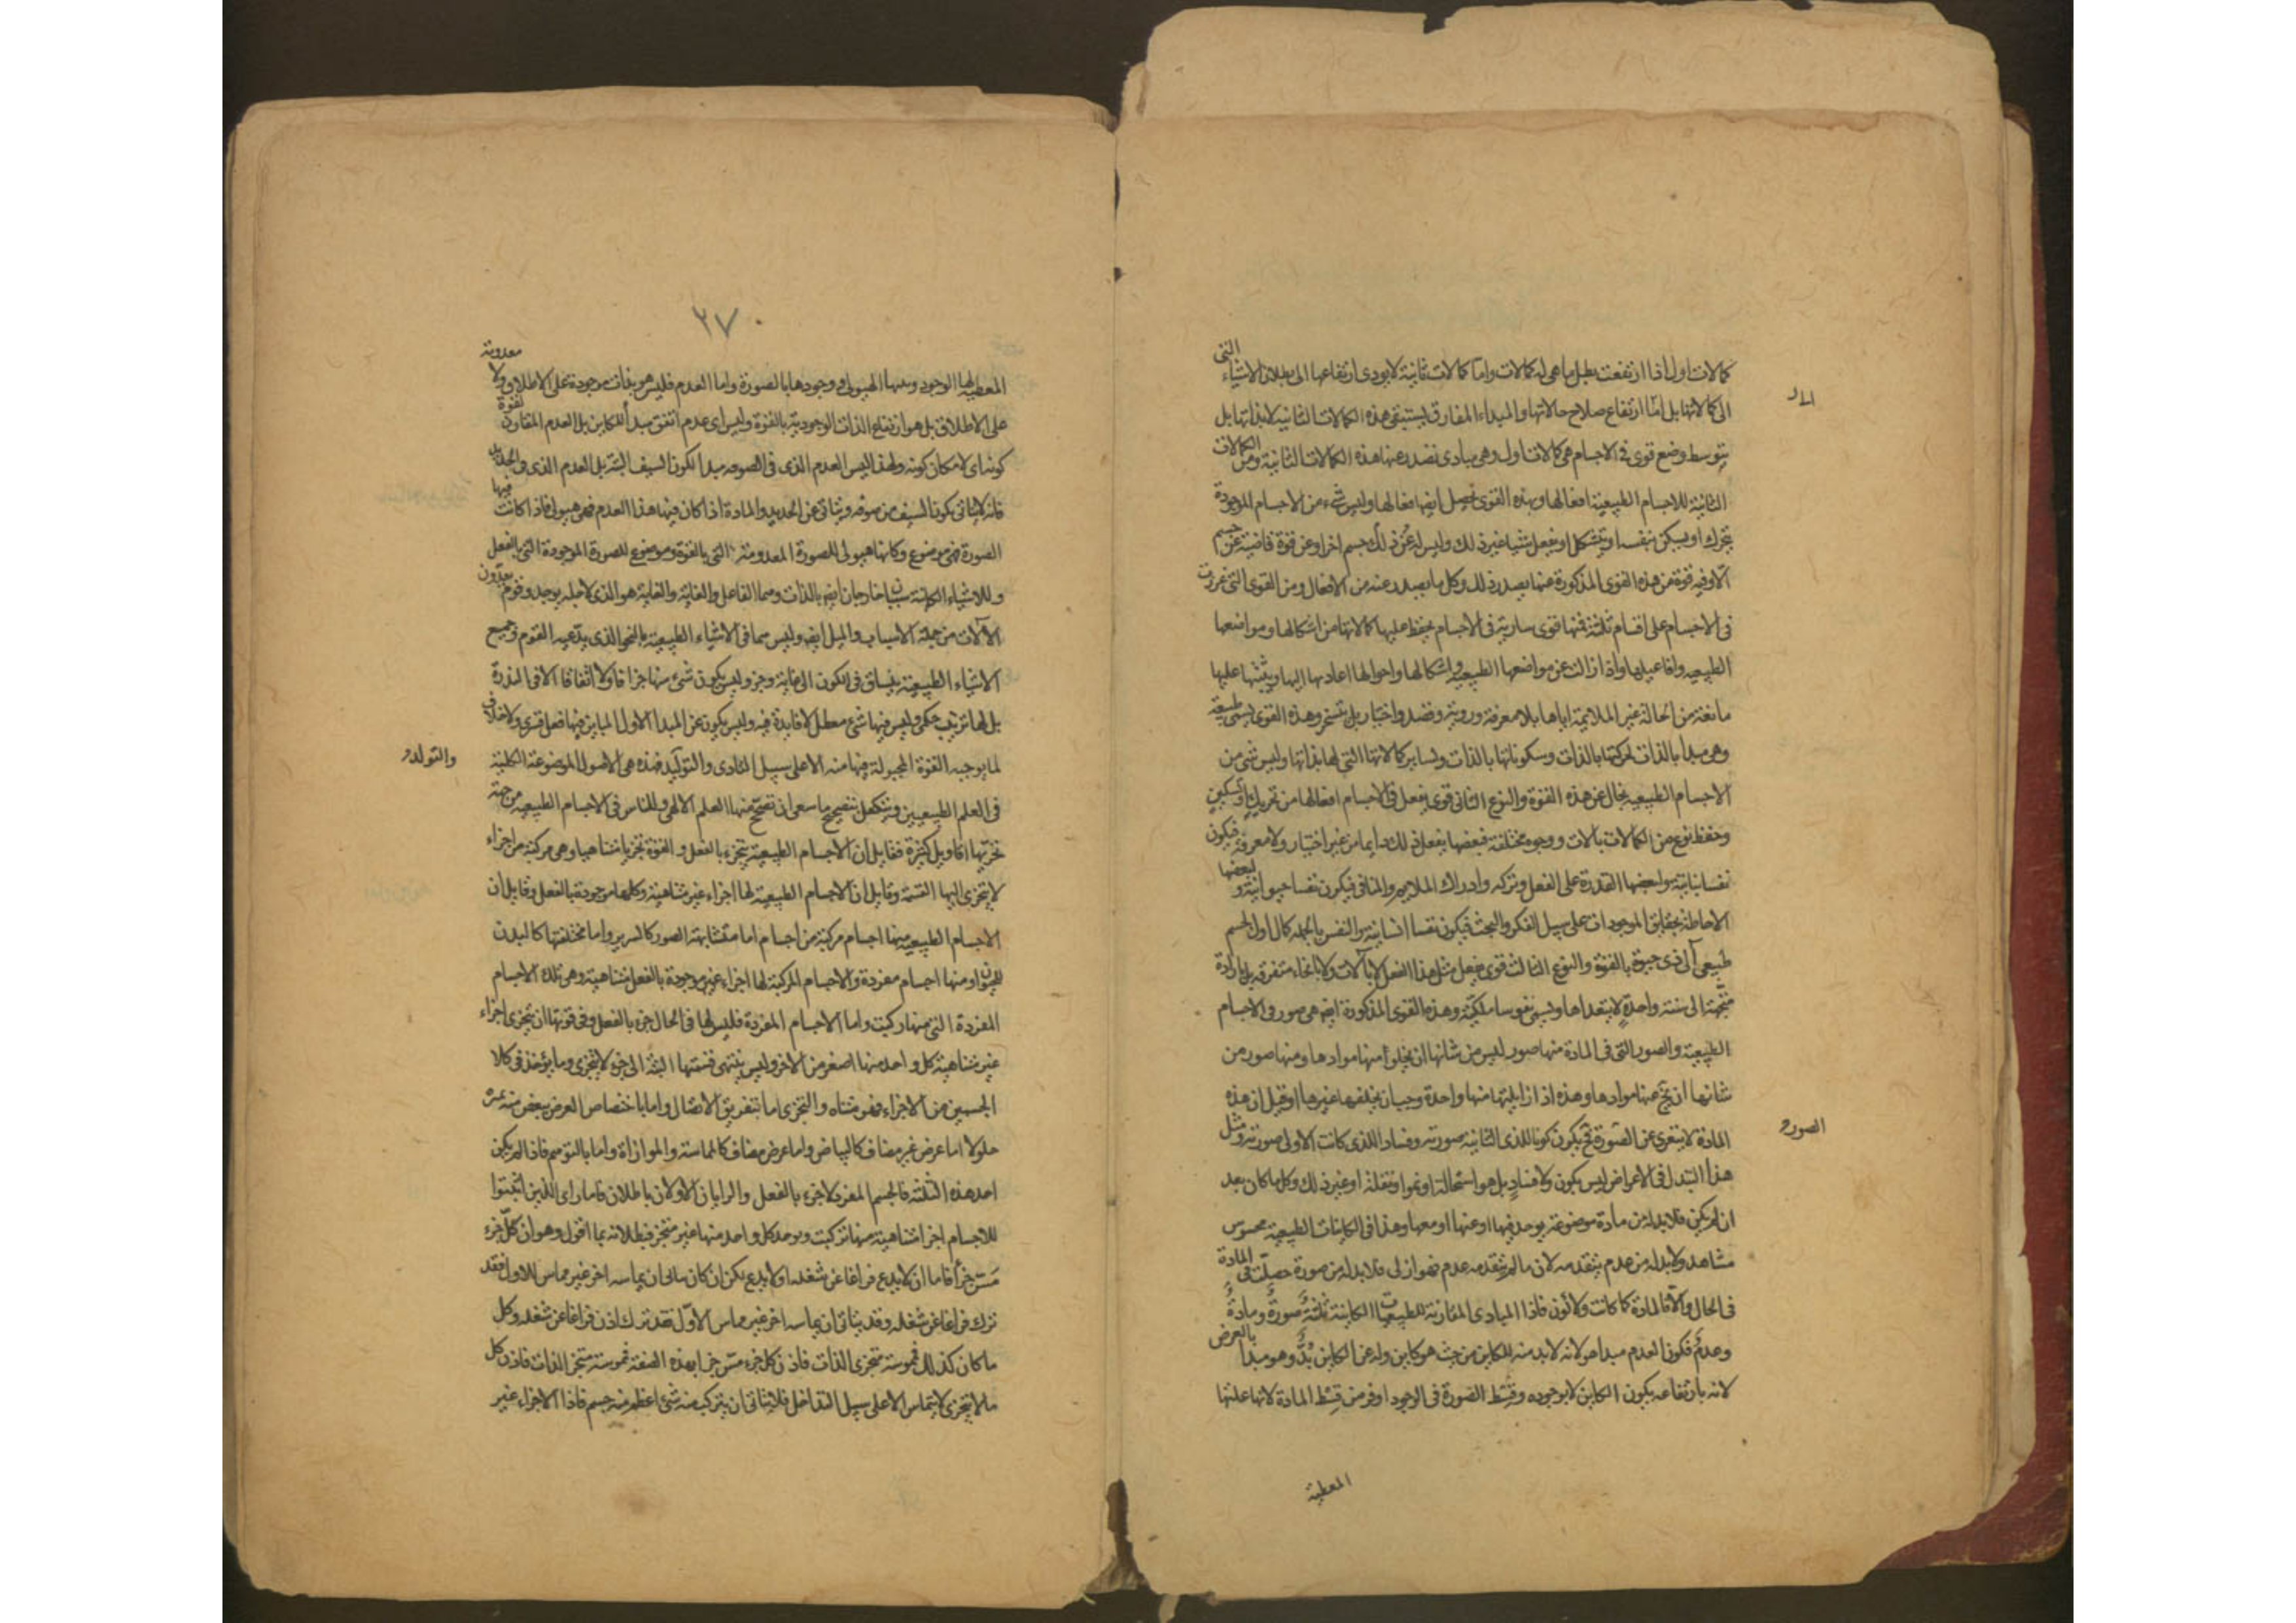 كمالات اول اذا ارتفعت بطل ما هى له كمالات واما كمالات ثانية لا يودى ارتفاعها الى بطلان الاشياء التى
الى كمالاتها بل ارتفاع صلاح حالاتها والمبداء المفارق يستبقى هذه الكمالات الثانية لا بذاتها بل
بتوسط وضع قوى فى الاجسام هى كمالات اول وهى مبادى تصدر عنها هذه الكمالات الثانية ومن الكمالات
الثانية للاجسام الطبيعية افعالها وبهذه القوى تحصل ايضا افعالها وليس شىء من الاجسام الموجودة
يتحرك او يسكن بنفسه او يتشكل او يفعل شيئا غير ذلك وليس له عن ذلك جسم اخر او عن قوة فائضة عن جسم
الا وفيه قوة من هذه القوى المذكورة عنها يصدر ذلك وكل ما يصدر عنه من الافعال ومن القوى التى غرزت
فى الاجسام على اقسام ثلثة فمنها قوى سارية فى الاجسام يحفظ عليها كمالاتها من اشكالها ومواضعها
الطبيعية وافاعيلها واذا زالت عن مواضعها الطبيعية واشكالها واحوالها اعادتها اليها وثبتتها عليها
مانعة من الحالة غير الملايمة اياها بلا معرفة وروية وقصد واختيار بل بتسخير وهذه القوى يسمى طبيعية
وهى مبدا بالذات لحركتها بالذات وسكوناتها بالذات ولساير كمالاتها التى لها بذاتها وليس شىء من
الاجسام الطبيعية بخال عن هذه القوة والنوع الثانى قوى يفعل فى الاجسام افعالها من تحريك او تسكين
وحفظ نوع من الكمالات بالات ووجوه مختلفة فبعضها يفعل ذلك دايما من غير اختيار ولا معرفة فيكون
نفسا نباتية ولبعضها القدرة على الفعل وتركه وادراك الملايم والمنافى فيكون نفسا حيوانية و لبعضها
الاحاطة بحقايق الموجودات على سبيل الفكر والبحث فيكون نفسا انسانية والنفس بالجملة كمال اول لجسم
طبيعى آلى ذى حيوة بالقوة والنوع الثالث قوى يفعل مثل هذا الفعل لا بآلات ولا بانحاء متفرقة بل بارادة
متجهة الى سنة واحدة لا يتعداها ويسمى نفوسا ملكية وهذه القوى المذكورة ايضا هى صور فى الاجسام
الطبيعية والصور التى فى المادة منها صور ليس من شانها ان يخلو منها موادها ومنها صور من
شانها ان تخ عنها موادها وهذه اذا زايلتها منها واحدة وجب ان يخلفها غيرها او قيل ان هذه
المادة لا يتعرى عن الصورة فح يكون كونا للذى الثانية صورته وفسادا للذى كانت الاولى صورته ومثل
هذا التبدل فى الاعراض ليس بكون ولا فساد بل هو استحالة او نمو او نقلة او غير ذلك وكل ما كان بعد
ان لم يكن فلا بد له من مادة موضوعة يوجد فيها او عنها او معها وهذا فى الكاينات الطبيعية محسوس
مشاهد ولا بد له من عدم يتقدمه لان ما لم يتقدمه عدم فهو ازلى فلا بد له من صورة حصلت فى المادة
فى الحال والا فالمادة كما كانت ولا كون فاذا المبادى المقارنة للطبيعيات الكاينة ثلثة صورة ومادة
وعدم فكون العدم مبدا هو لانه لا بد منه للكاين من حيث هو كاين وله عن الكاين بد وهو مبدا بالعرض
لانه بارتفاعه يكون الكاين لا بوجوده وقسط الصورة فى الوجود اوفر من قسط المادة لانها علتها
الصورة
المعطية
٢٧
المعطية لها الوجود ويليها الهيولى ووجودها بالصورة واما العدم فليس هو بذات موجودة على الاطلاق ولا معدومة
على الاطلاق بل هو ارتفاع الذات الوجودية بالقوة وليس اى عدم اتفق مبدأ للكاين بل العدم المقارن لقوة
كونه اى لامكان كونه ولهذا ليس العدم الذى فى الصوفه مبدا لكون السيف البتة بل العدم الذى فى الحديد
فانه لا يتاتى يكون السيف من صوفه ويتاتى عن الحديد والمادة اذا كان فيها هذا العدم فهى هيولى فاذا كانت فيها
الصورة فهى موضوع وكانها هيولى للصورة المعدومة التى بالقوة وموضوع للصورة الموجودة التى بالفعل
وللاشياء الكائنة سببان خارجان ايضا بالذات وهما الفاعل والغاية والغاية هو الذى لاجله يوجد وقوم يعدون
الآلات من جملة الاسباب والمثل ايضا وليس هما فى الاشياء الطبيعية بالنحو الذى يدعيه القوم وجميع
الاشياء الطبيعية ينساق فى الكون الى غاية وخير وليس يكون شىء منها جزافا ولا اتفاقا الا فى الندرة
بل لها ترتيب حكمى وليس فيها شىء معطل لا فايدة فيه وليس يكون عن المبدا الاول المباين فيها فعل قسرى ولا خلاف
لما يوجبه القوة المجبولة فيها منه الا على سبيل التادى والتوليد فهذه هى الاصول الموضوعة الكلية
والتولد
فى العلم الطبيعيين ويتكفل بتصحيح ما سعى ان تصحح منها العلم الالهى وللناس فى الاجسام الطبيعية من جهة
تجزيها اقاويل كثيرة فقايل ان الاجسام الطبيعية يتجزء بالفعل و القوة تجزيا متناهيا وهى مركبة من اجزاء
لا يتجزى اليها القسمة وقايل ان الاجسام الطبيعية لها اجزاء غير متناهية وكلها موجودة بالفعل وقايل ان
الاجسام الطبيعية منها اجسام مركبة من اجسام اما متشابهة الصور كالسرير واما مختلفتها كالبدن
للحيوان ومنها اجسام مفردة والاجسام المركبة لها اجزاء غير موجودة بالفعل متناهية وهى تلك الاجسام
المفردة التى منها ركبت واما الاجسام المفردة فليس لها فى الحال جزء بالفعل وفى قوتها ان يتجزى اجزاء
غير متناهية كل واحد منها اصغر من الاخر وليس ينتهى قسمتها البتة الى جزء لا يتجزى وما يؤخذ فى كلا
الجسمين من الاجزاء فهو متناه والتجزى اما بتفريق الاتصال واما باختصاص العرض ببعض منه
حلولا اما عرض غير مضاف كالبياض واما عرض مضاف كالمماسة والموازاة واما بالتوهم فاذا لم يكن
احد هذه الثلثة فالجسم المفرد لا جزء بالفعل والرايان الاولان باطلان فاما راى الذين اثبتوا
للاجسام اجزا متناهية منها تركبت ويوجد كل واحد منها غير متجز فبطلانه بما اقول وهو ان كل جزء
مس جزأ فاما ان لا يدع فراغا عن شغله او لا يدع لكن ان كان يتاتى ان يماسه اخر غير مماس للاول فقد
ترك فراغا عن شغله وقد يتاتى ان يماسه اخر غير مماس الاول فقد ترك اذن فراغا عن شغله وكل
ما كان كذلك فممسوسه متجزى الذات فاذن كل جزء مس جزا بهذه الصفة فممسوسه متجز الذات فاذن كل
ما لا يتجزى لا يتماس الا على سبيل التداخل فلا يتاتى ان يتركب منه شىء اعظم منه جسم فاذا الاجزاء غير